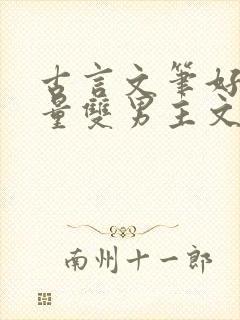 古言文筆好
量雙男主文
南州十一郎